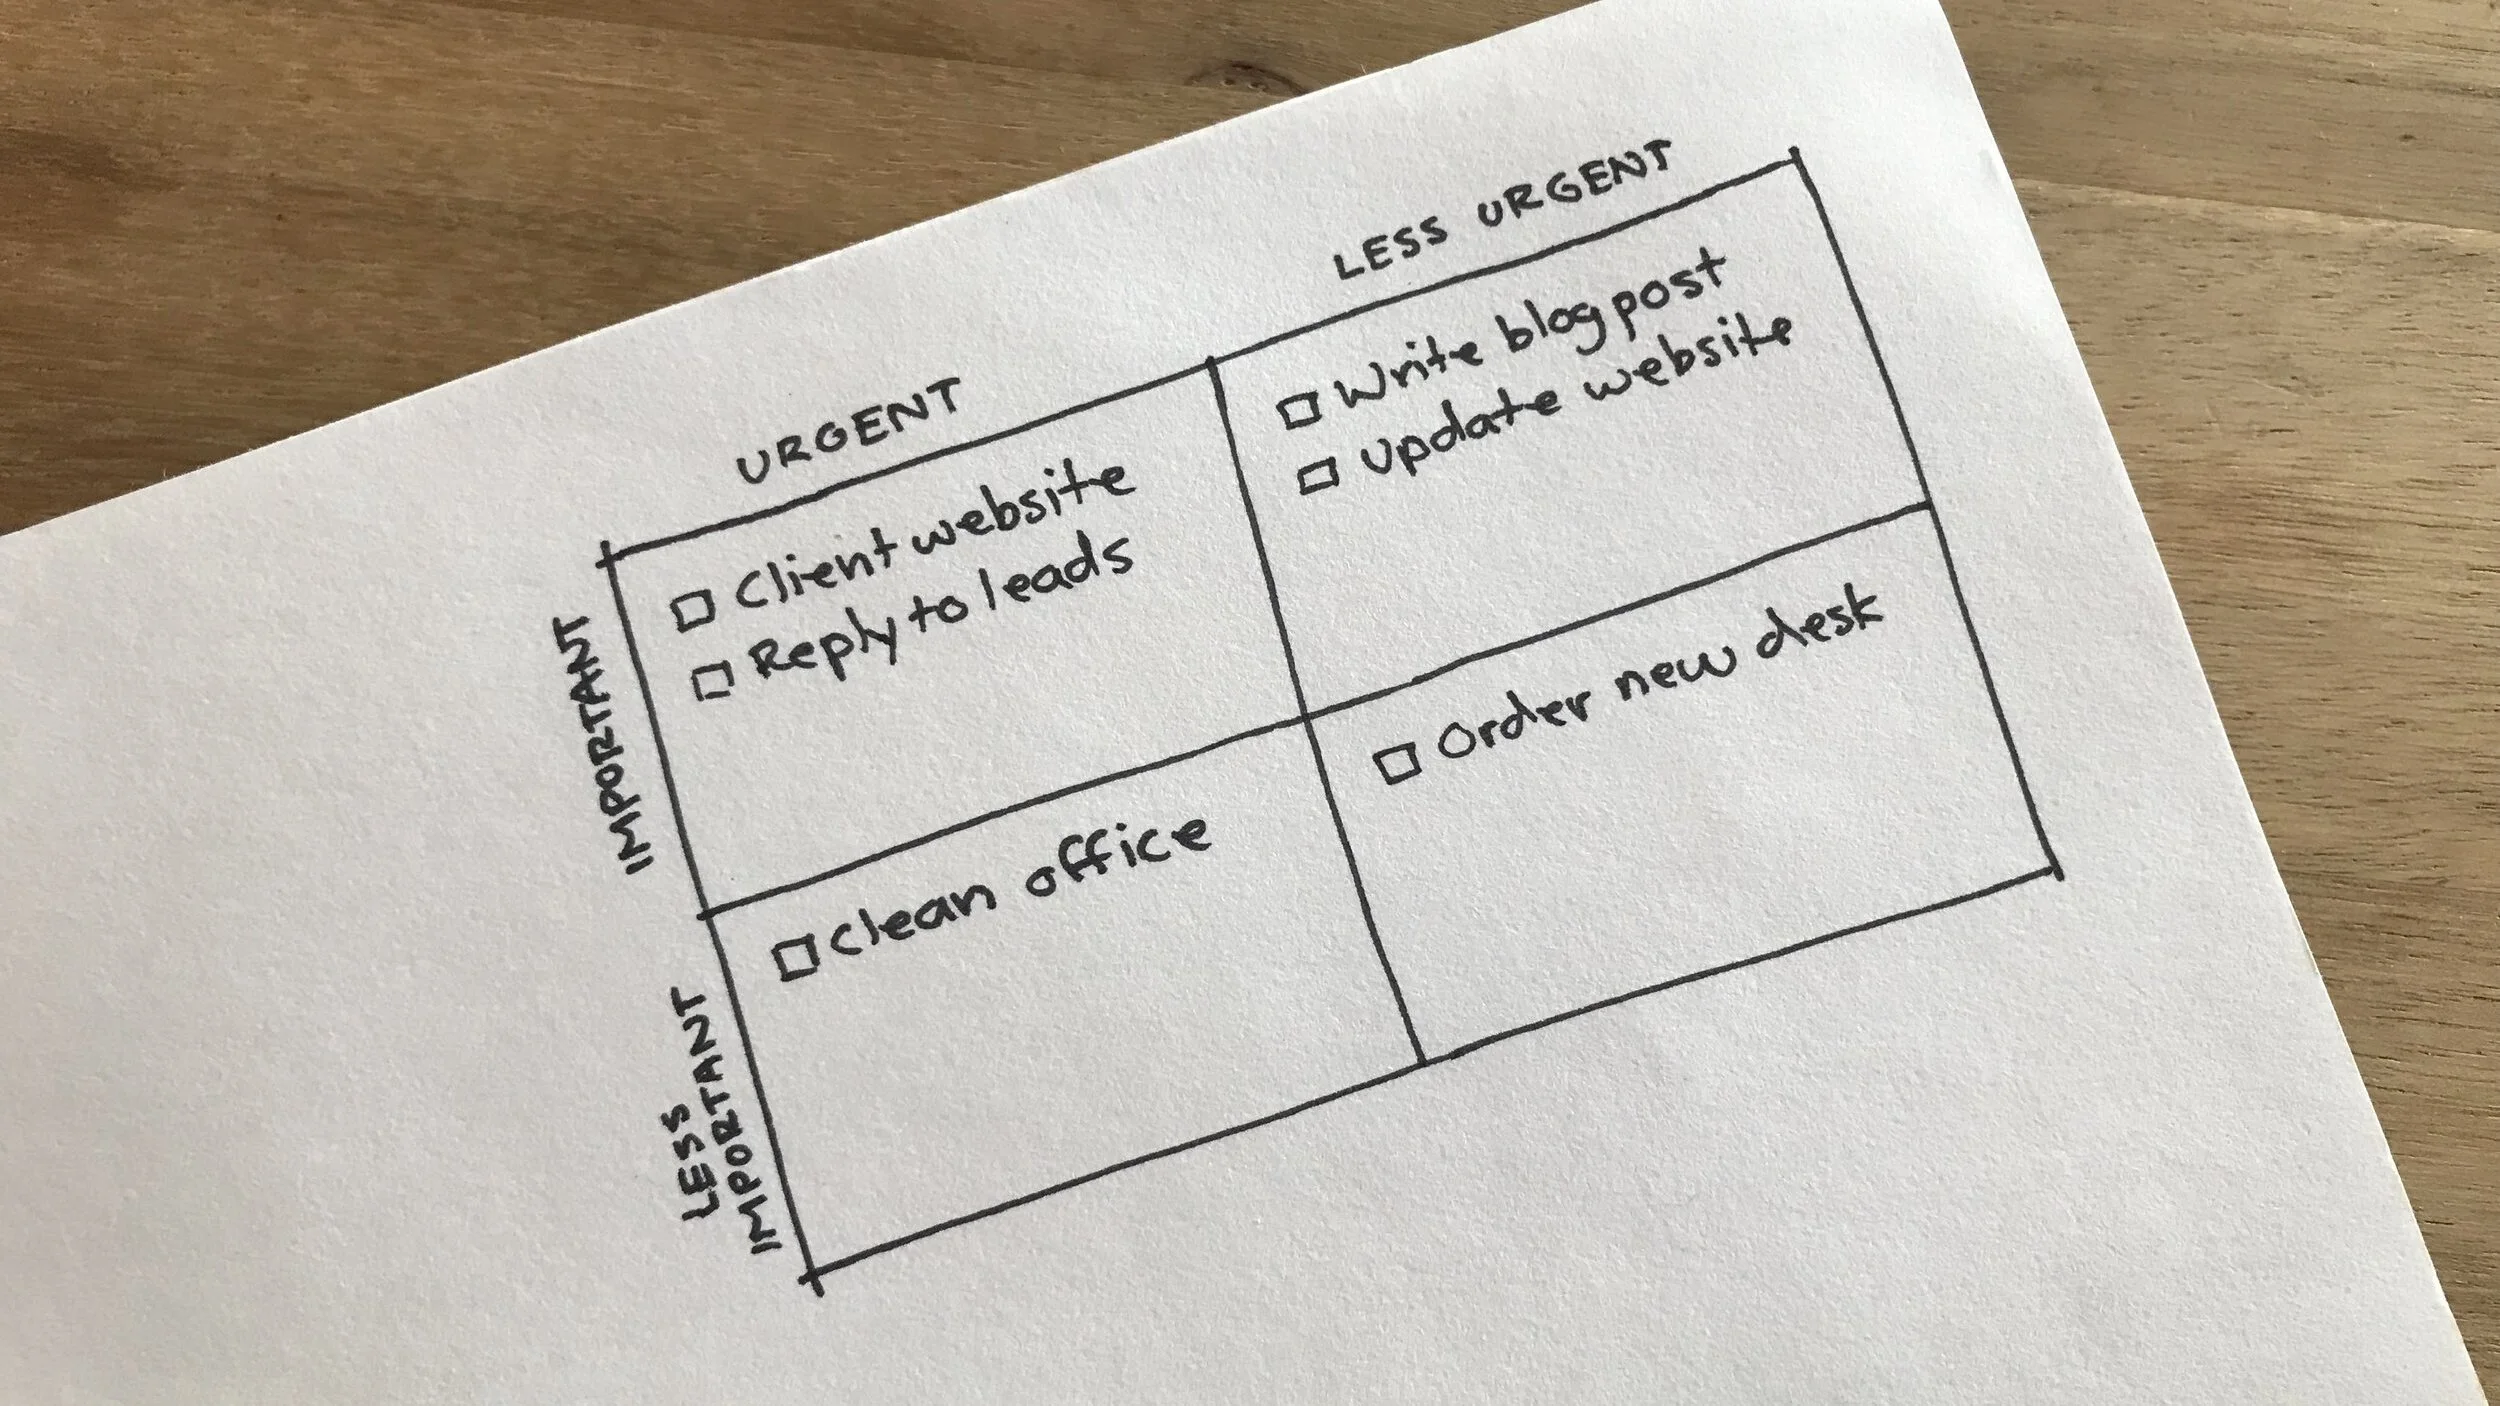 URGENT
LESS URGENT
IMPORTANT
Client website
Reply to leads
Write blog post
Update website
LESS
IMPORTANT
Clean office
Order new desk